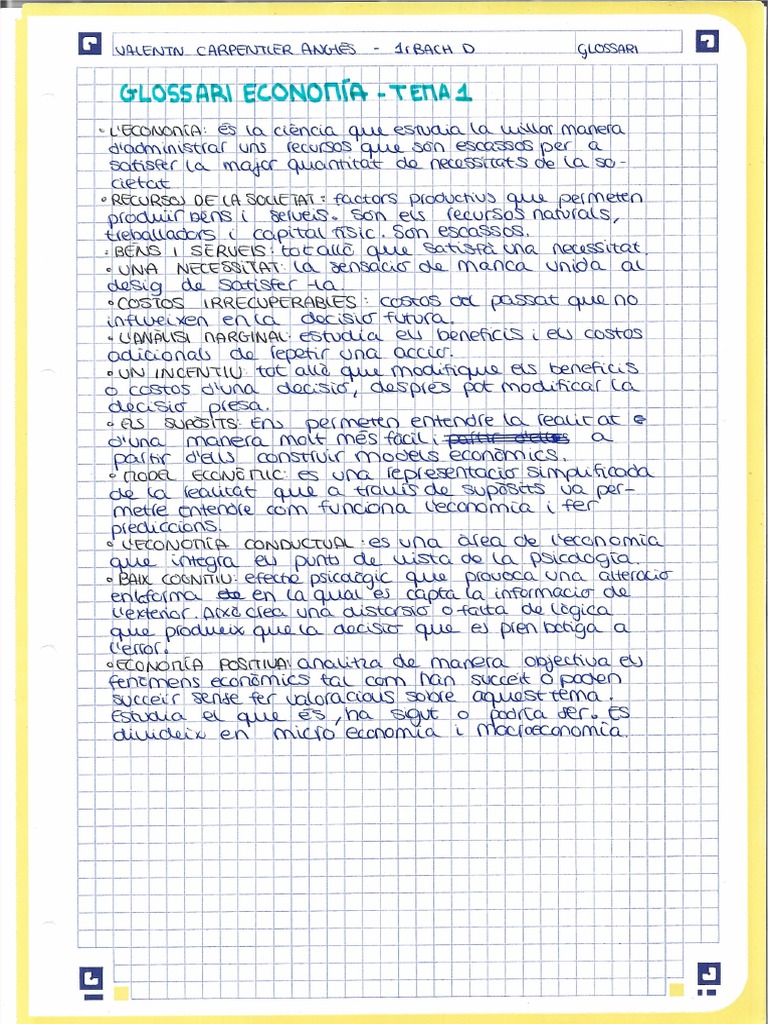 VALENTIN CARPENTIER ANGLÈS - 1r BACH D GLOSSARI
GLOSSARI ECONOMÍA - TEMA 1
• L'ECONOMÍA: és la ciència que estudia la millor manera
d'administrar uns recursos que són escassos per a
satisfer la major quantitat de necessitats de la so-
cietat
• RECURSOS DE LA SOCIETAT: factors productius que permeten
produir béns i serveis. Són els recursos naturals,
treballadors i capital físic. Són escassos.
• BÉNS I SERVEIS: tot allò que satisfà una necessitat.
• UNA NECESSITAT: la sensació de manca unida al
desig de satisfer-la.
• COSTOS IRRECUPERABLES: costos del passat que no
influeixen en la decisió futura.
• L'ANÀLISI MARGINAL: estudia els beneficis i els costos
adicionals de repetir una acció.
• UN INCENTIU: tot allò que modifique els beneficis
o costos d'una decisió, després pot modificar la
decisió presa.
• ELS SUPÒSITS: Ens permeten entendre la realitat
d'una manera molt més fàcil i a
partir d'ells construir models econòmics.
• MODEL ECONÒMIC: és una representació simplificada
de la realitat que a través de supòsits va per-
metre entendre com funciona l'economía i fer
prediccions.
• L'ECONOMÍA CONDUCTUAL: és una àrea de l'economía
que integra els punts de vista de la psicología.
• BAIX COGNITIU: efecte psicològic que provoca una alteració
en la forma en la qual es capta la informació de
l'exterior. Això crea una distorsió o falta de lògica
que produeix que la decisió que es pren botiga a
l'error.
• ECONOMÍA POSITIVA: analitza de manera objectiva els
fenòmens econòmics tal com han succeït o poden
succeir sense fer valoracions sobre aquest tema.
Estudia el que és, ha sigut o podría ser. Es
divideix en micro economía i macroeconomía.